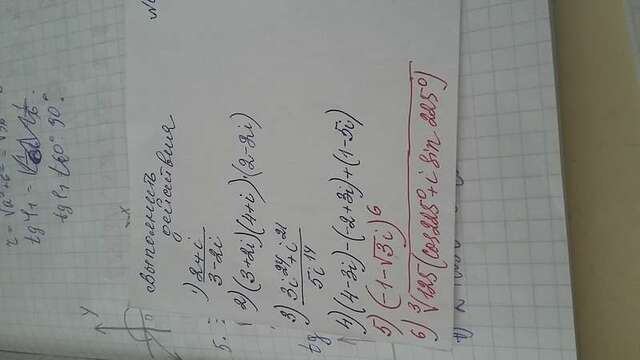 tgφ₁ =
tgφ₁ 90°
y
x
0
Выполнить
действия
1) (2+i)/(3-2i)
5.
2) (3+2i)(4+i)·(2-2i)
3) (3i²⁷+i²¹)/(5i¹⁴)
tg
4) (4-3i)-(-2+3i)+(1-5i)
5) (-1-√3i)⁶
6) ∛125(cos225°+i sin 225°)